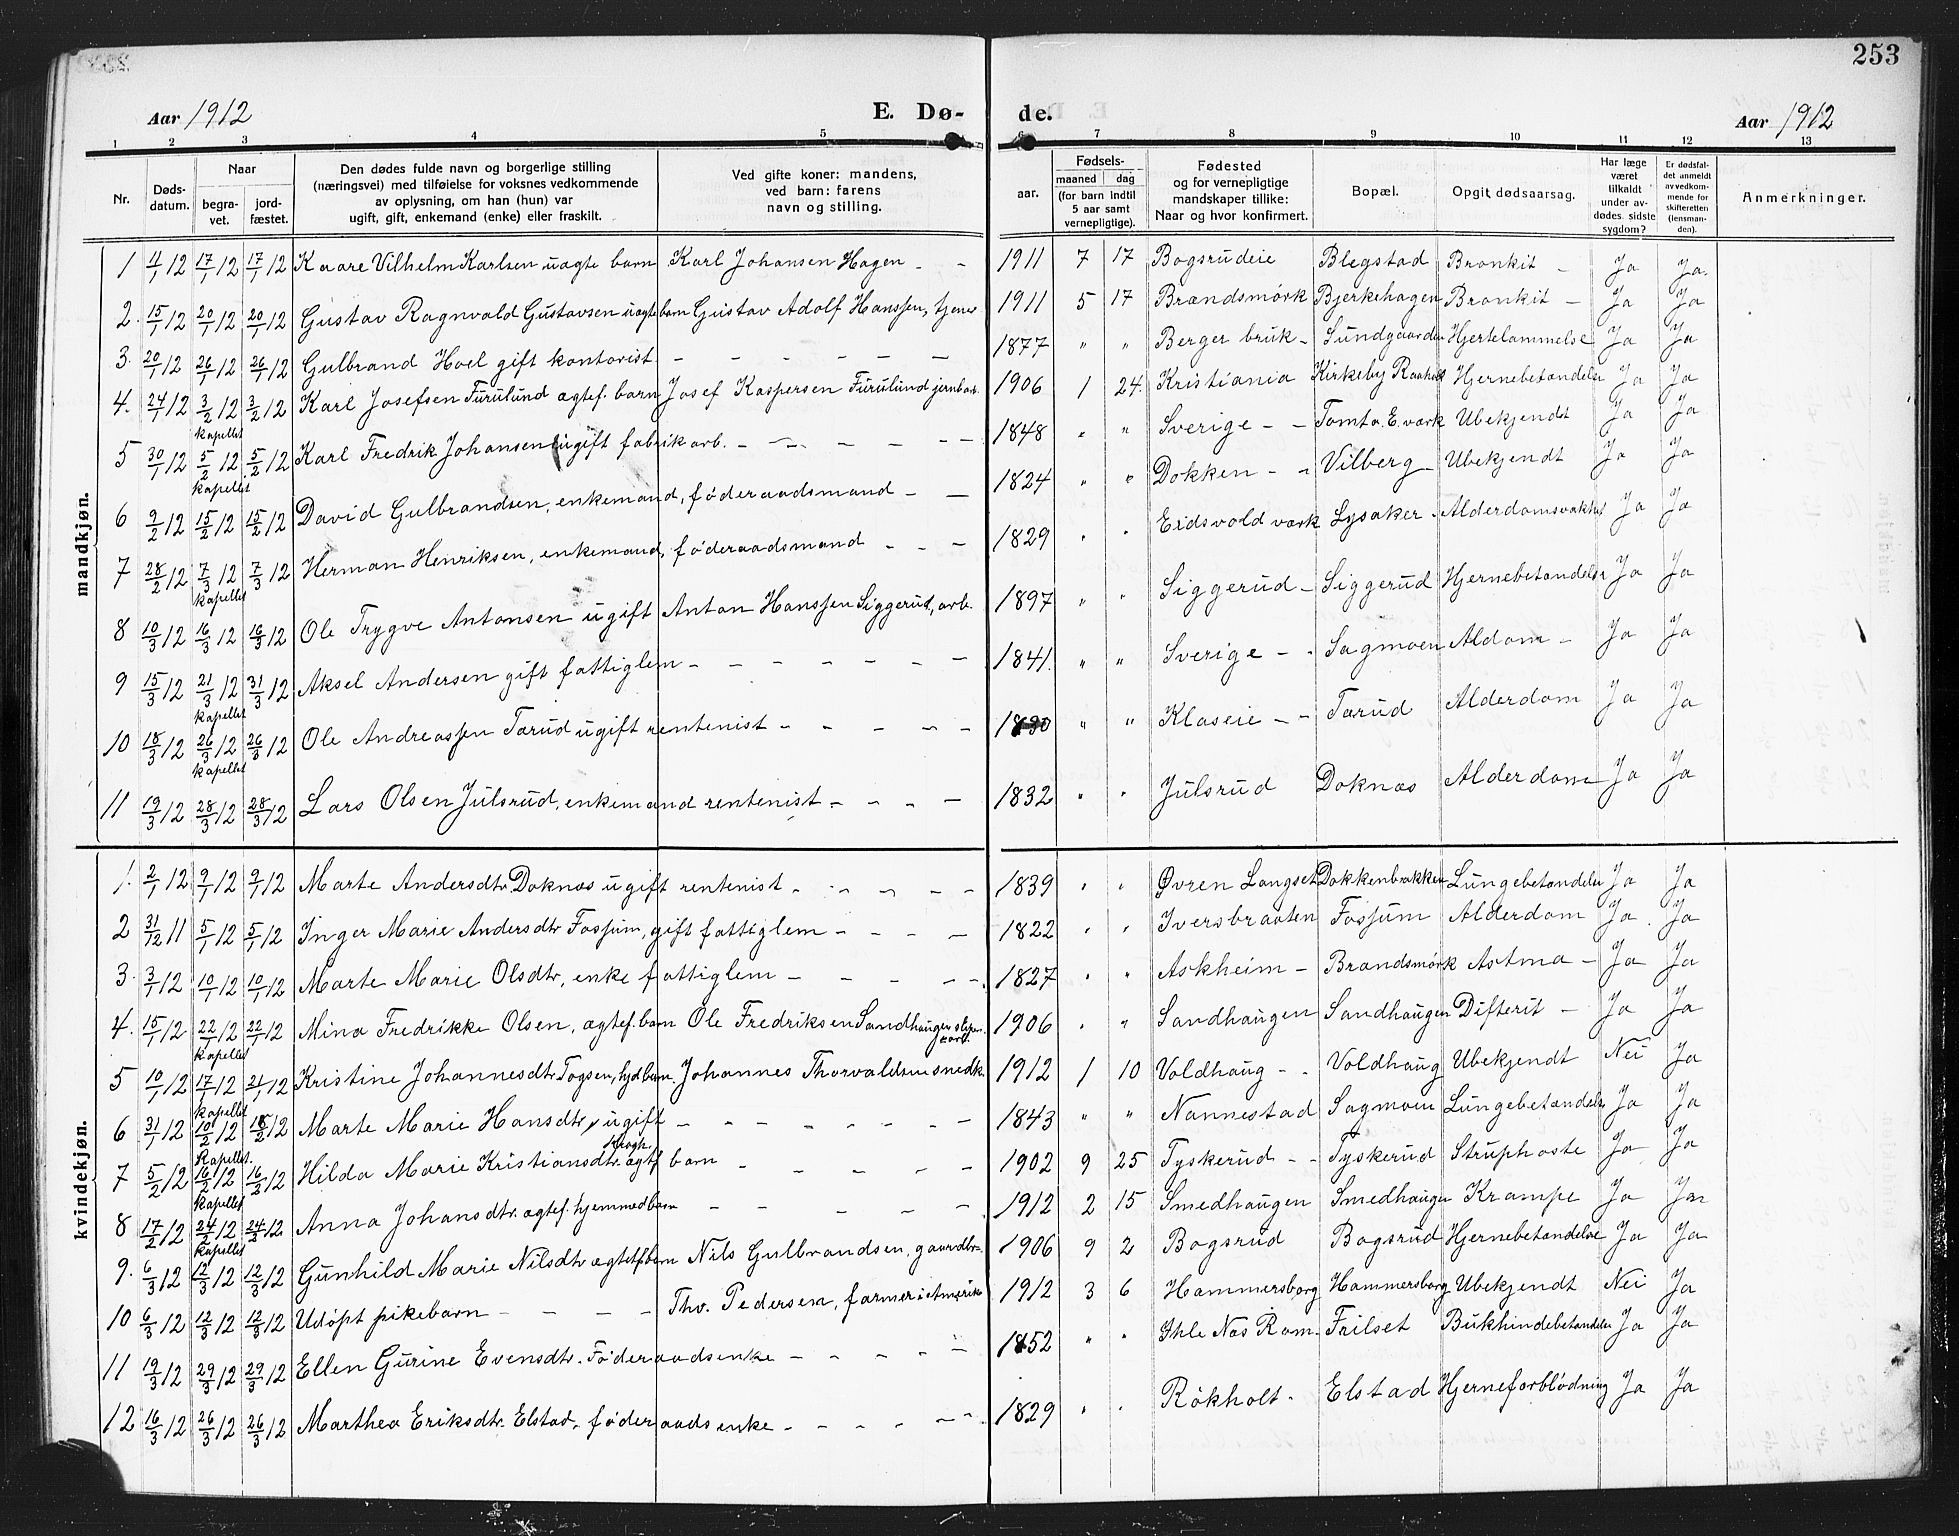 253
Aar 1912 E. Dø- de. Aar 1912
1 2 3 4 5 6 7 8 9 10 11 12 13
Nr. Døds-datum. Naar begra-vet. jord-fæstet. Den dødes fulde navn og borgerlige stilling (næringsvei) med tilføielse for voksnes vedkommende av oplysning, om han (hun) var ugift, gift, enkemand (enke) eller fraskilt. Ved gifte koner: mandens, ved barn: farens navn og stilling. Fødsels- aar. maaned dag (for barn indtil 5 aar samt vernepligtige). Fødested og for vernepligtige mandskaper tillike: Naar og hvor konfirmert. Bopæl. Opgit dødsaarsag. Har læge været tilkaldt under av-dødes sidste sygdom? Er dødsfal-det anmeldt av vedkom-mende for skifteretten (lensman-den). Anmerkninger.
mandkjøn.
1 11/1 12 17/1 12 17/1 12 Kaare Vilhelm Karlsen uægte barn Karl Johansen Hagen - - 1911 7 17 Bogsrudeie Blegstad Bronkit - Ja Ja.
2. 15/1 12 20/1 12 20/1 12 Gustav Ragnvald Gustavsen uægte barn Gustav Adolf Hanssen, tjener 1911 5 17 Brændsmørk Bjerkehagen Bronkit - Ja Ja
3. 20/1 12 26/1 12 26/1 12 Gulbrand Hoel gift kontorist - - - - - 1877 " " Berger bruk - Sundgaarden Hjertelammelse Ja Ja
4. 24/1 12 3/2 12 3/2 12 Karl Josefsen Furulund ægtef. barn Josef Kaspersen Furulund jernbar. 1906 1 24. Kristiania Kirkeby Raaholt Hjernebetændelse Ja Ja
kapellet
5 30/1 12 5/2 12 5/2 12 Karl Fredrik Johansen ugift fabrikarb. - - - - - - 1848 " " Sverige - - Tomta E. værk Ubekjendt Ja Ja
kapellet
6 9/2 12 15/2 12 15/2 12 David Gulbrandsen, enkemand, føderaadsmand - - 1824 " " Dokken - - Vilberg - Ubekjendt Ja Ja
7 28/2 12 7/3 12 7/3 12 Herman Henriksen, enkemand, føderaadsmand - - - 1829 " " Eidsvold værk Lysaker - Alderdomsvakhet Ja Ja
kapellet
8 10/3 12 16/3 12 16/3 12 Ole Trygve Antonsen ugift Anton Hanssen Siggerud, arb. 1897 " " Siggerud - Siggerud Hjernebetændelse Ja Ja
9 15/3 12 21/3 12 31/3 12 Aksel Andersen gift fattiglem - - - - - - - 1841. " " Sverige - - Sagmoen Aldom - Ja Ja
kapellet
10 18/3 12 26/3 12 26/3 12 Ole Andreassen Tærud ugift rentenist - - - - - 1830 " " Klaseie - - Tærud Alderdom Ja Ja
kapellet
11 19/3 12 28/3 12 28/3 12 Lars Olsen Julsrud, enkemand rentenist - - - - 1832 " " Julsrud Doknæs Alderdom Ja Ja
kvindekjøn.
1. 2/1 12 9/1 12 9/1 12 Marte Andersdtr Doknæs ugift rentenist - - - - - 1839 " " Øvren Langset Dokkenbakken Lungebetændelse Ja Ja
2 31/12 11 5/1 12 5/1 12 Inger Marie Andersdtr Fossum, gift fattiglem - - - - 1822 " " Iversbraaten Fossum Alderdom Ja Ja
3. 3/1 12 10/1 12 10/1 12 Marte Marie Olsdtr, enke fattiglem - - - - - 1827 " " Askheim - Brændsmørk Astma - Ja Ja
4. 15/1 12 22/1 12 22/1 12 Mina Fredrikke Olsen, ægtef. barn Ole Fredriksen Sandhaugen sliperarb. 1906 " " Sandhaugen Sandhaugen Difterit - Ja Ja
kapellet
5 10/1 12 17/1 12 21/1 12 Kristine Johannesdtr Togsen, hjdbarn. Johannes Thorvaldsen snedk. 1912 1 10 Voldhaug - - Voldhaug Ubekjendt Nei Ja
kapellet
6 31/1 12 10/2 12 18/2 12 Marte Marie Hansdtr, ugift - - - - - - - 1843 " " Nannestad Sagmoen Lungebetændelse Ja Ja
Kapellet.
7 5/2 12 16/2 12 16/2 12 Hilda Marie Kristiansdtr Krogh. ægtf barn - - - - - 1902 9 25 Tyskerud - - Tyskerud Struphoste Ja Ja
kapellet
8 17/2 12 24/2 12 24/2 12 Anna Johansdtr. ægtef. hjemmedbarn - - - - - 1912 2 15 Smedhaugen Smedhaugen Krampe Ja Ja
kapellet
9. 6/3 12 12/3 12 12/3 12 Gunhild Marie Nilsdtr ægtetf. barn Nils Gulbrandsen, gaardbr. 1906 9 2 Bogsrud Bogsrud Hjernebetændelse Ja Ja
10 6/3 12 12/3 12 12/3 12 Udøpt pikebarn - - - - Thv. Pedersen, farmer i Amerika 1912 3 6 Hammersborg Hammersborg Ubekjendt Nei Ja
11 19/3 12 29/3 12 29/3 12 Ellen Gurine Evensdtr. Føderaadsenke - - - - - 1852 " " Ihle Næs Rom. Frilset Bukhindebetændelse Ja Ja
12 16/3 12 26/3 12 26/3 12 Marthea Eriksdtr. Elstad, føderaadsenke - - - - - 1829 " " Røkholt - Elstad Hjerneforblødning Ja Ja